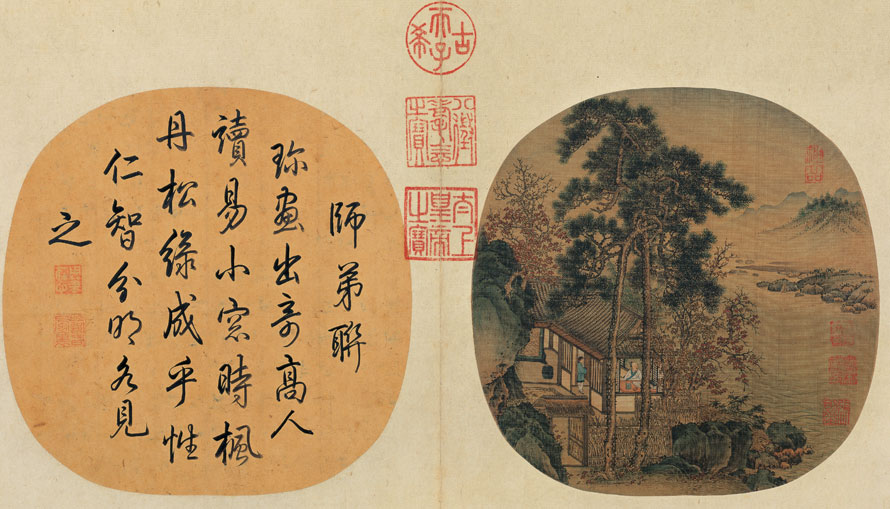 古希天子
八徵耄念之寶
太上皇帝之寶
師弟聯
珎畫出奇高人
讀易小窓時楓
丹松綠成乎性
仁智分明各見
之